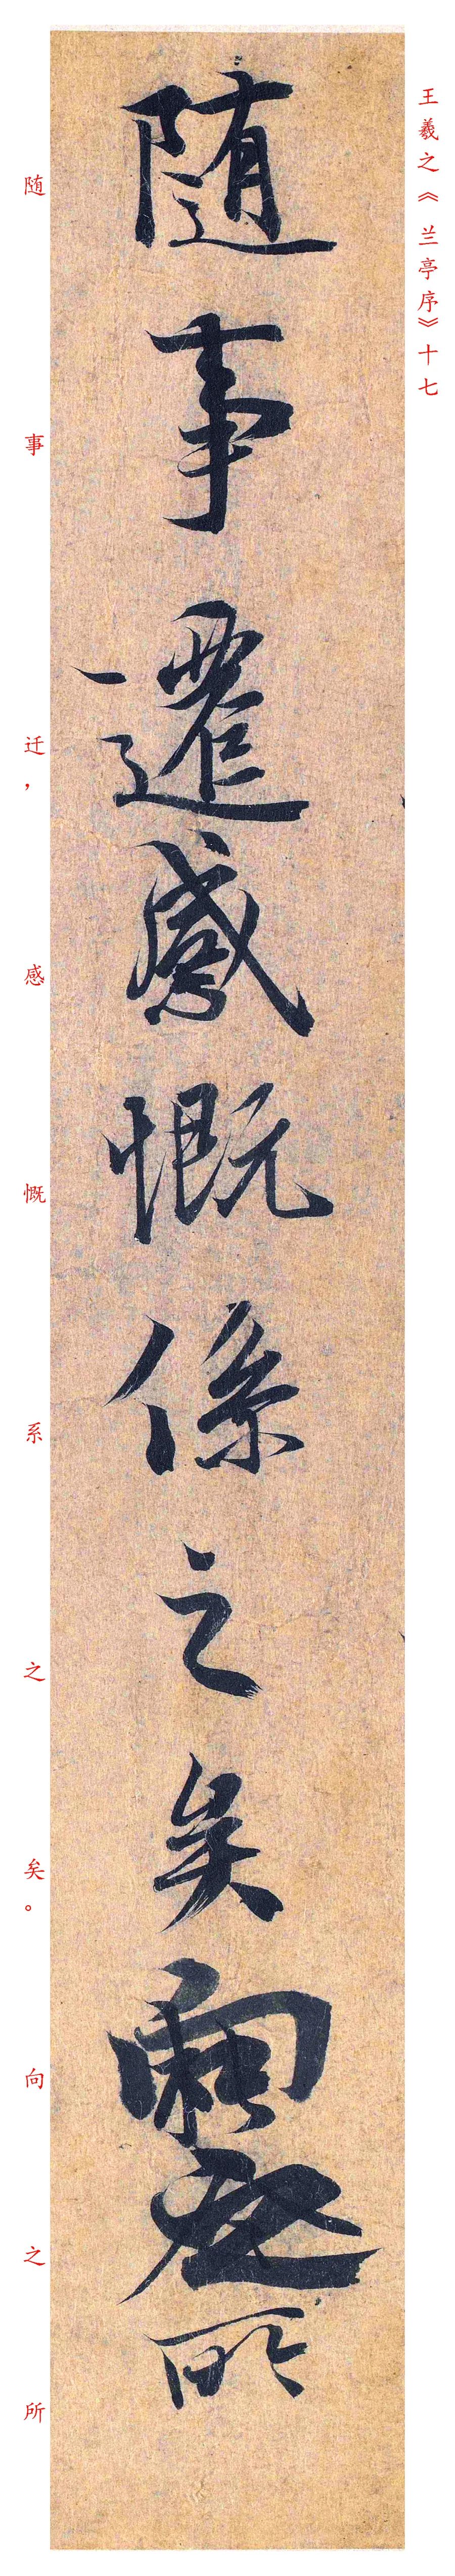 王羲之《兰亭序》十七
随事遷感慨係之矣向之所
随事迁，感慨系之矣。向之所